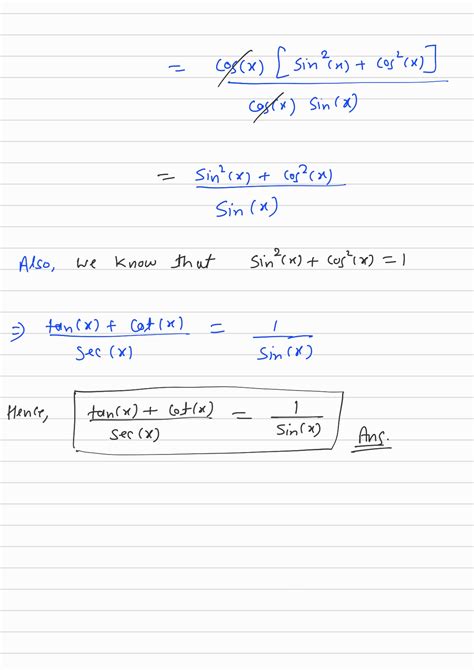 = cos(x) [sin²(x) + cos²(x)] / cos(x) sin(x)
= sin²(x) + cos²(x) / sin(x)
Also, we know that sin²(x) + cos²(x) = 1
⇒ tan(x) + cot(x) / sec(x) = 1 / sin(x)
Hence, tan(x) + cot(x) / sec(x) = 1 / sin(x) Ans.